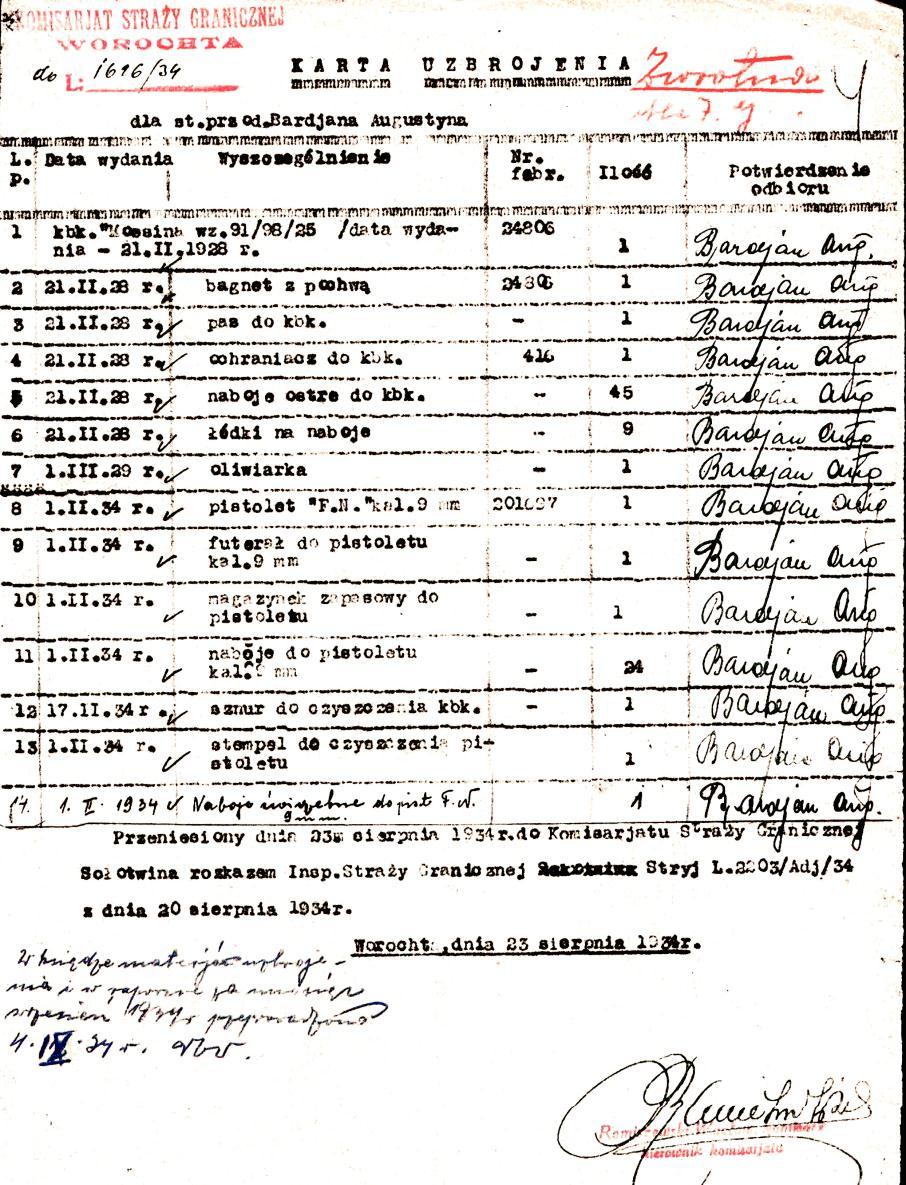 KOMISARJAT STRAŻY GRANICZNEJ
WOROCHTA
do L: 1616/34
KARTA UZBROJENIA
dla st.przod.Bardjana Augustyna
L.p. Data wydania Wyszczególnienie Nr. fabr. Ilość Potwierdzenie odbioru
1 kbk."Mossina wz.91/98/25 /data wyda- 24806
nia - 21.II.1928 r. 1 Bardján Aug.
2 21.II.28 r. bagnet z pochwą 24806 1 Bardján Aug
3 21.II.28 r. pas do kbk. - 1 Bardján Aug
4 21.II.28 r. ochraniacz do kbk. 416 1 Bardján Aug
5 21.II.28 r. naboje ostre do kbk. - 45 Bardján Aug
6 21.II.28 r. łódki na naboje - 9 Bardján Aug
7 1.III.29 r. oliwiarka - 1 Bardján Aug
8 1.II.34 r. pistolet "F.N."kal.9 mm 1 Bardján Aug
9 1.II.34 r. futerał do pistoletu
kal.9 mm - 1 Bardján Aug
10 1.II.34 r. magazynek zapasowy do
pistoletu - 1 Bardján Aug
11 1.II.34 r. naboje do pistoletu
kal.9 mm - 24 Bardján Aug
12 17.II.34 r. sznur do czyszczenia kbk. - 1 Bardján Aug
13 1.II.34 r. stempel do czyszczenia pi-
stoletu 1 Bardján Aug
14. 1. II. 1934 Naboje do pist F.N. 1 Bardján Aug.
9 mm.
Przeniesiony dnia 23 sierpnia 1934r.do Komisarjatu Straży Granicznej
Sołotwina rozkazem Insp.Straży Granicznej Stryj L.2203/Adj/34
z dnia 20 sierpnia 1934r.
Worochta,dnia 23 sierpnia 1934r.
W księdze materjału uzbroje-
nia i w za miesiąc
wrzesień 1934r przeprowadzono
4.IX.34 r.
kierownik komisarjatu